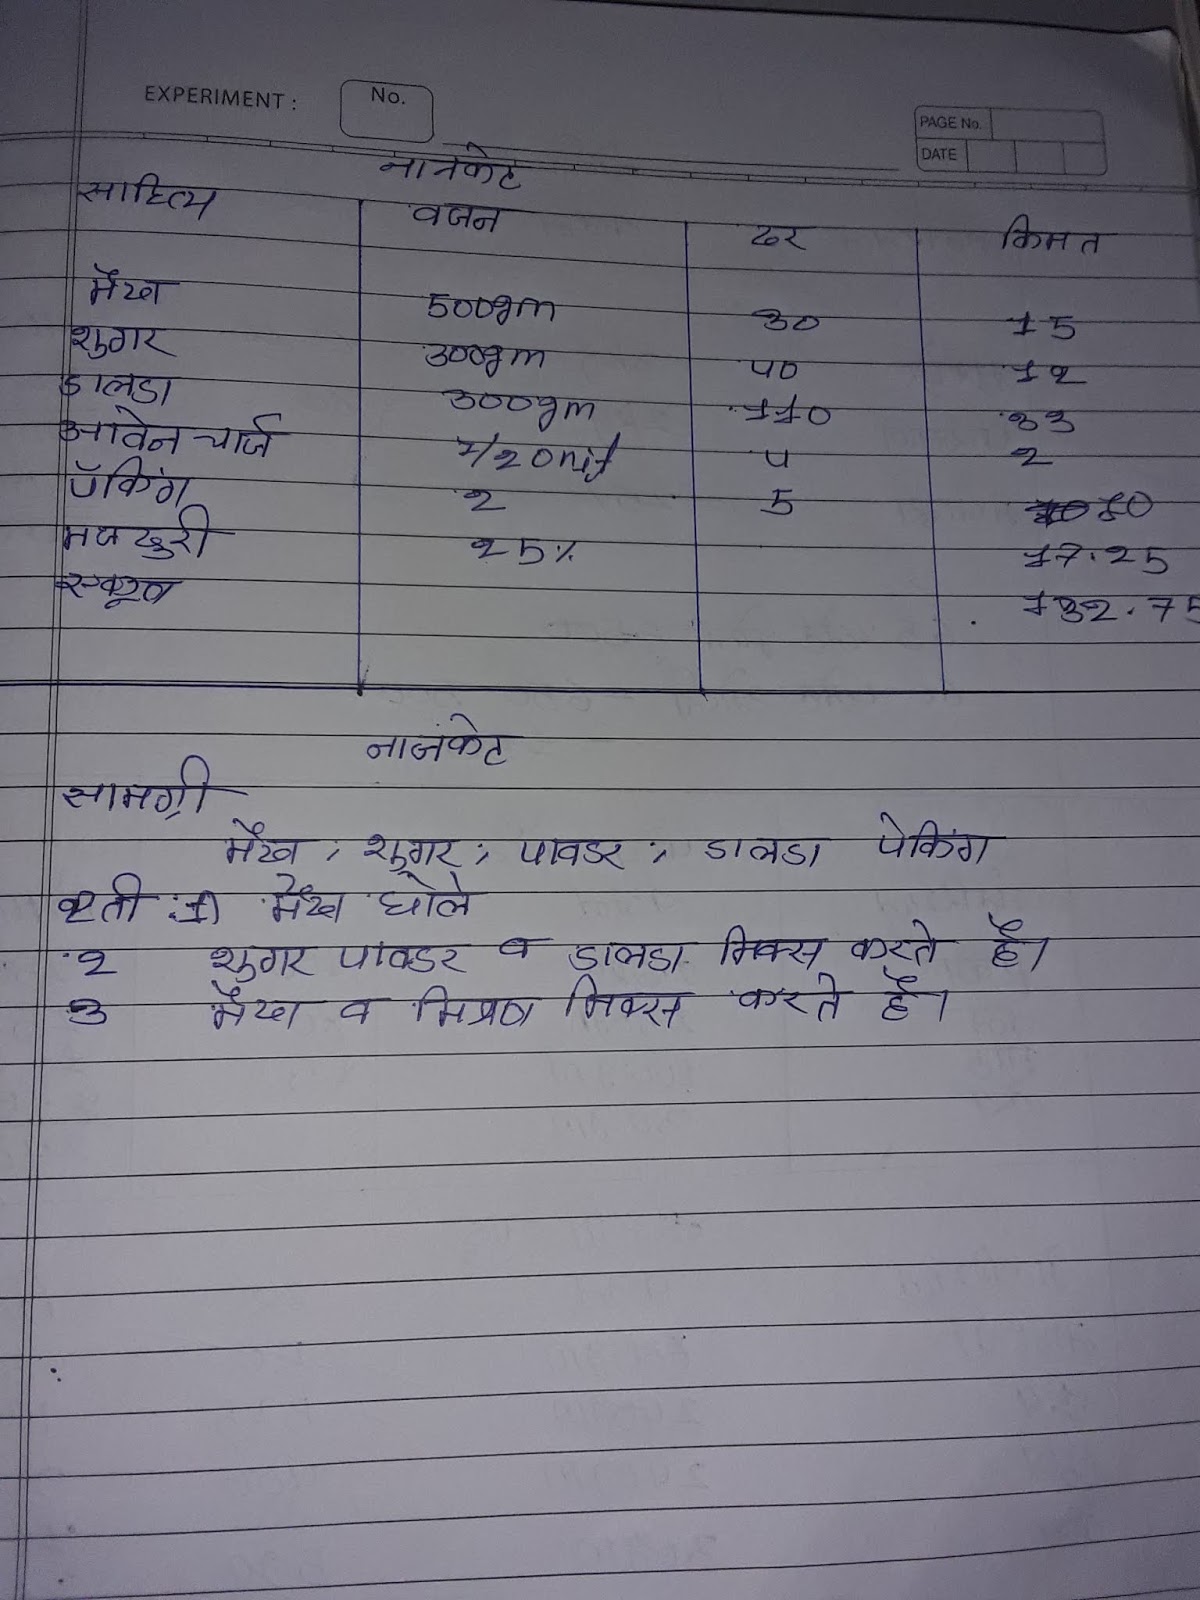 EXPERIMENT : No.
PAGE No.
DATE
नानकेट
साहित्य वजन दर किमत
मैदा 500gm 30 15
शुगर 300gm 40 12
डालडा 300gm 110 33
ओवेन चार्ज 1/20 4 2
पॅकिंग 2 5 10
मजदुरी 25% 17.25
एकूण 132.75
नानंकेट
सामग्री
मैदा , शुगर , पावडर , डालडा पेकिंग
1) मैदा घोले
2 शुगर पावडर व डालडा मिक्स करते है।
3 मैदा व मिश्रण मिक्स करते है।